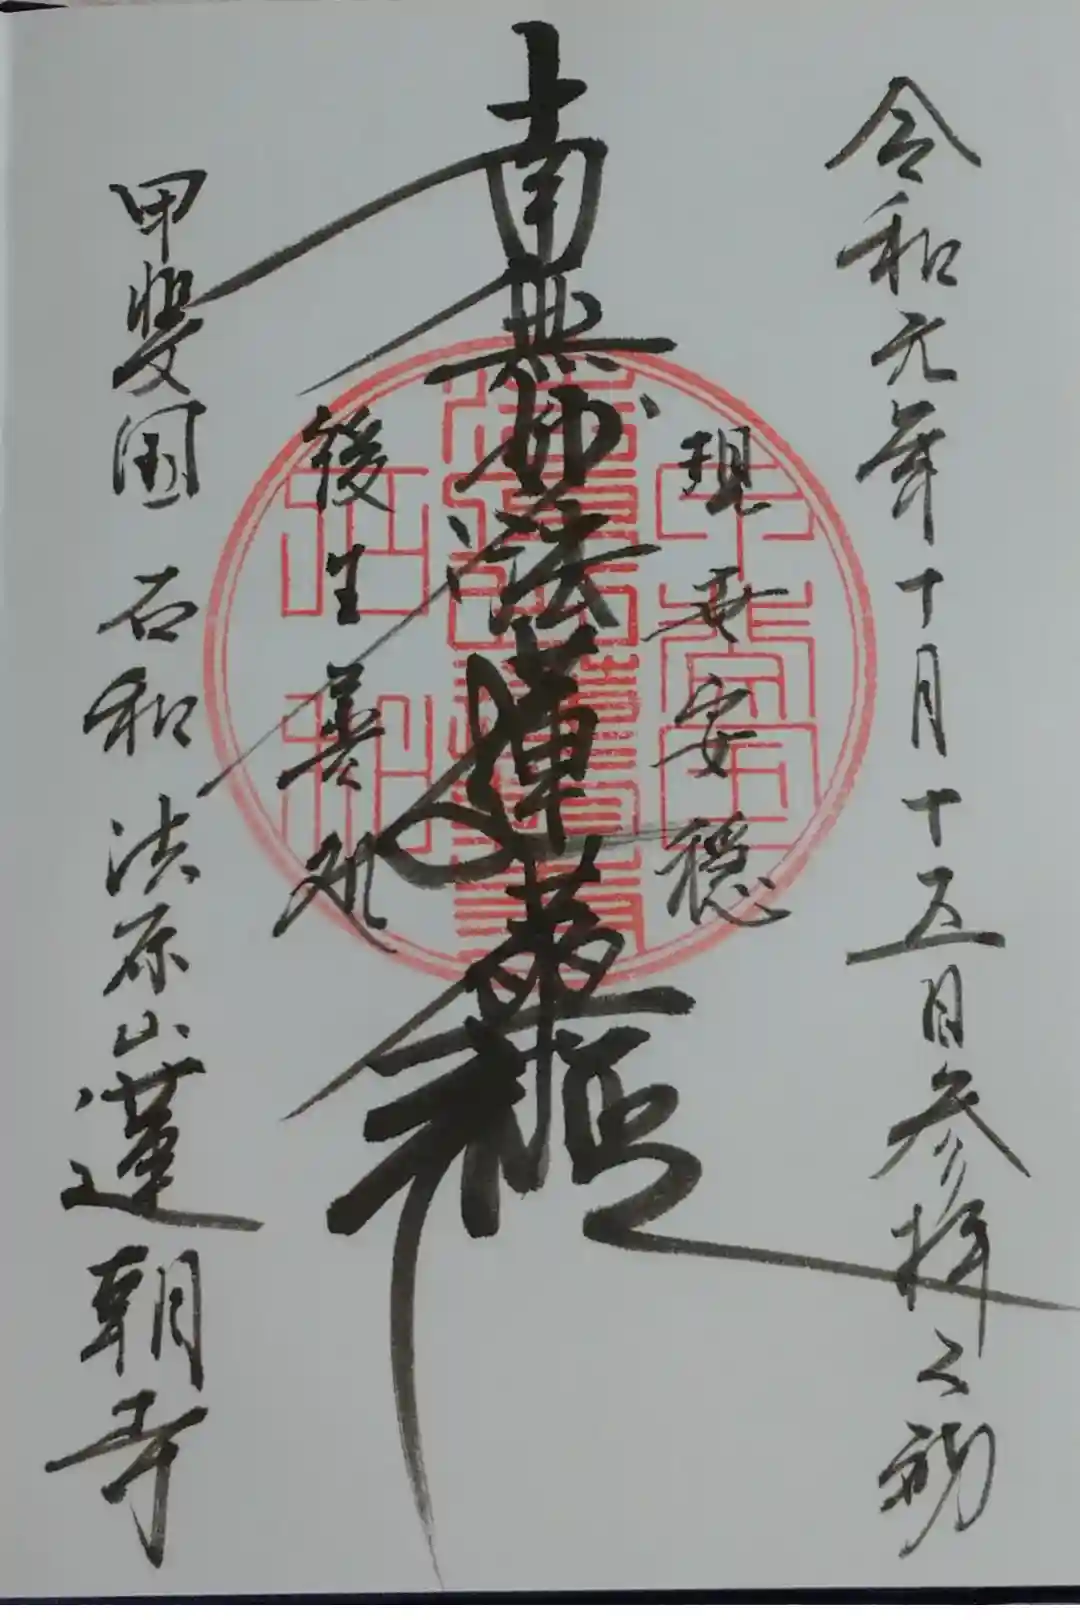 令和元年十月十五日参拝之砌
現世安穏
南無妙法蓮華経
後生善処
甲斐国 石和 法原山蓮朝寺